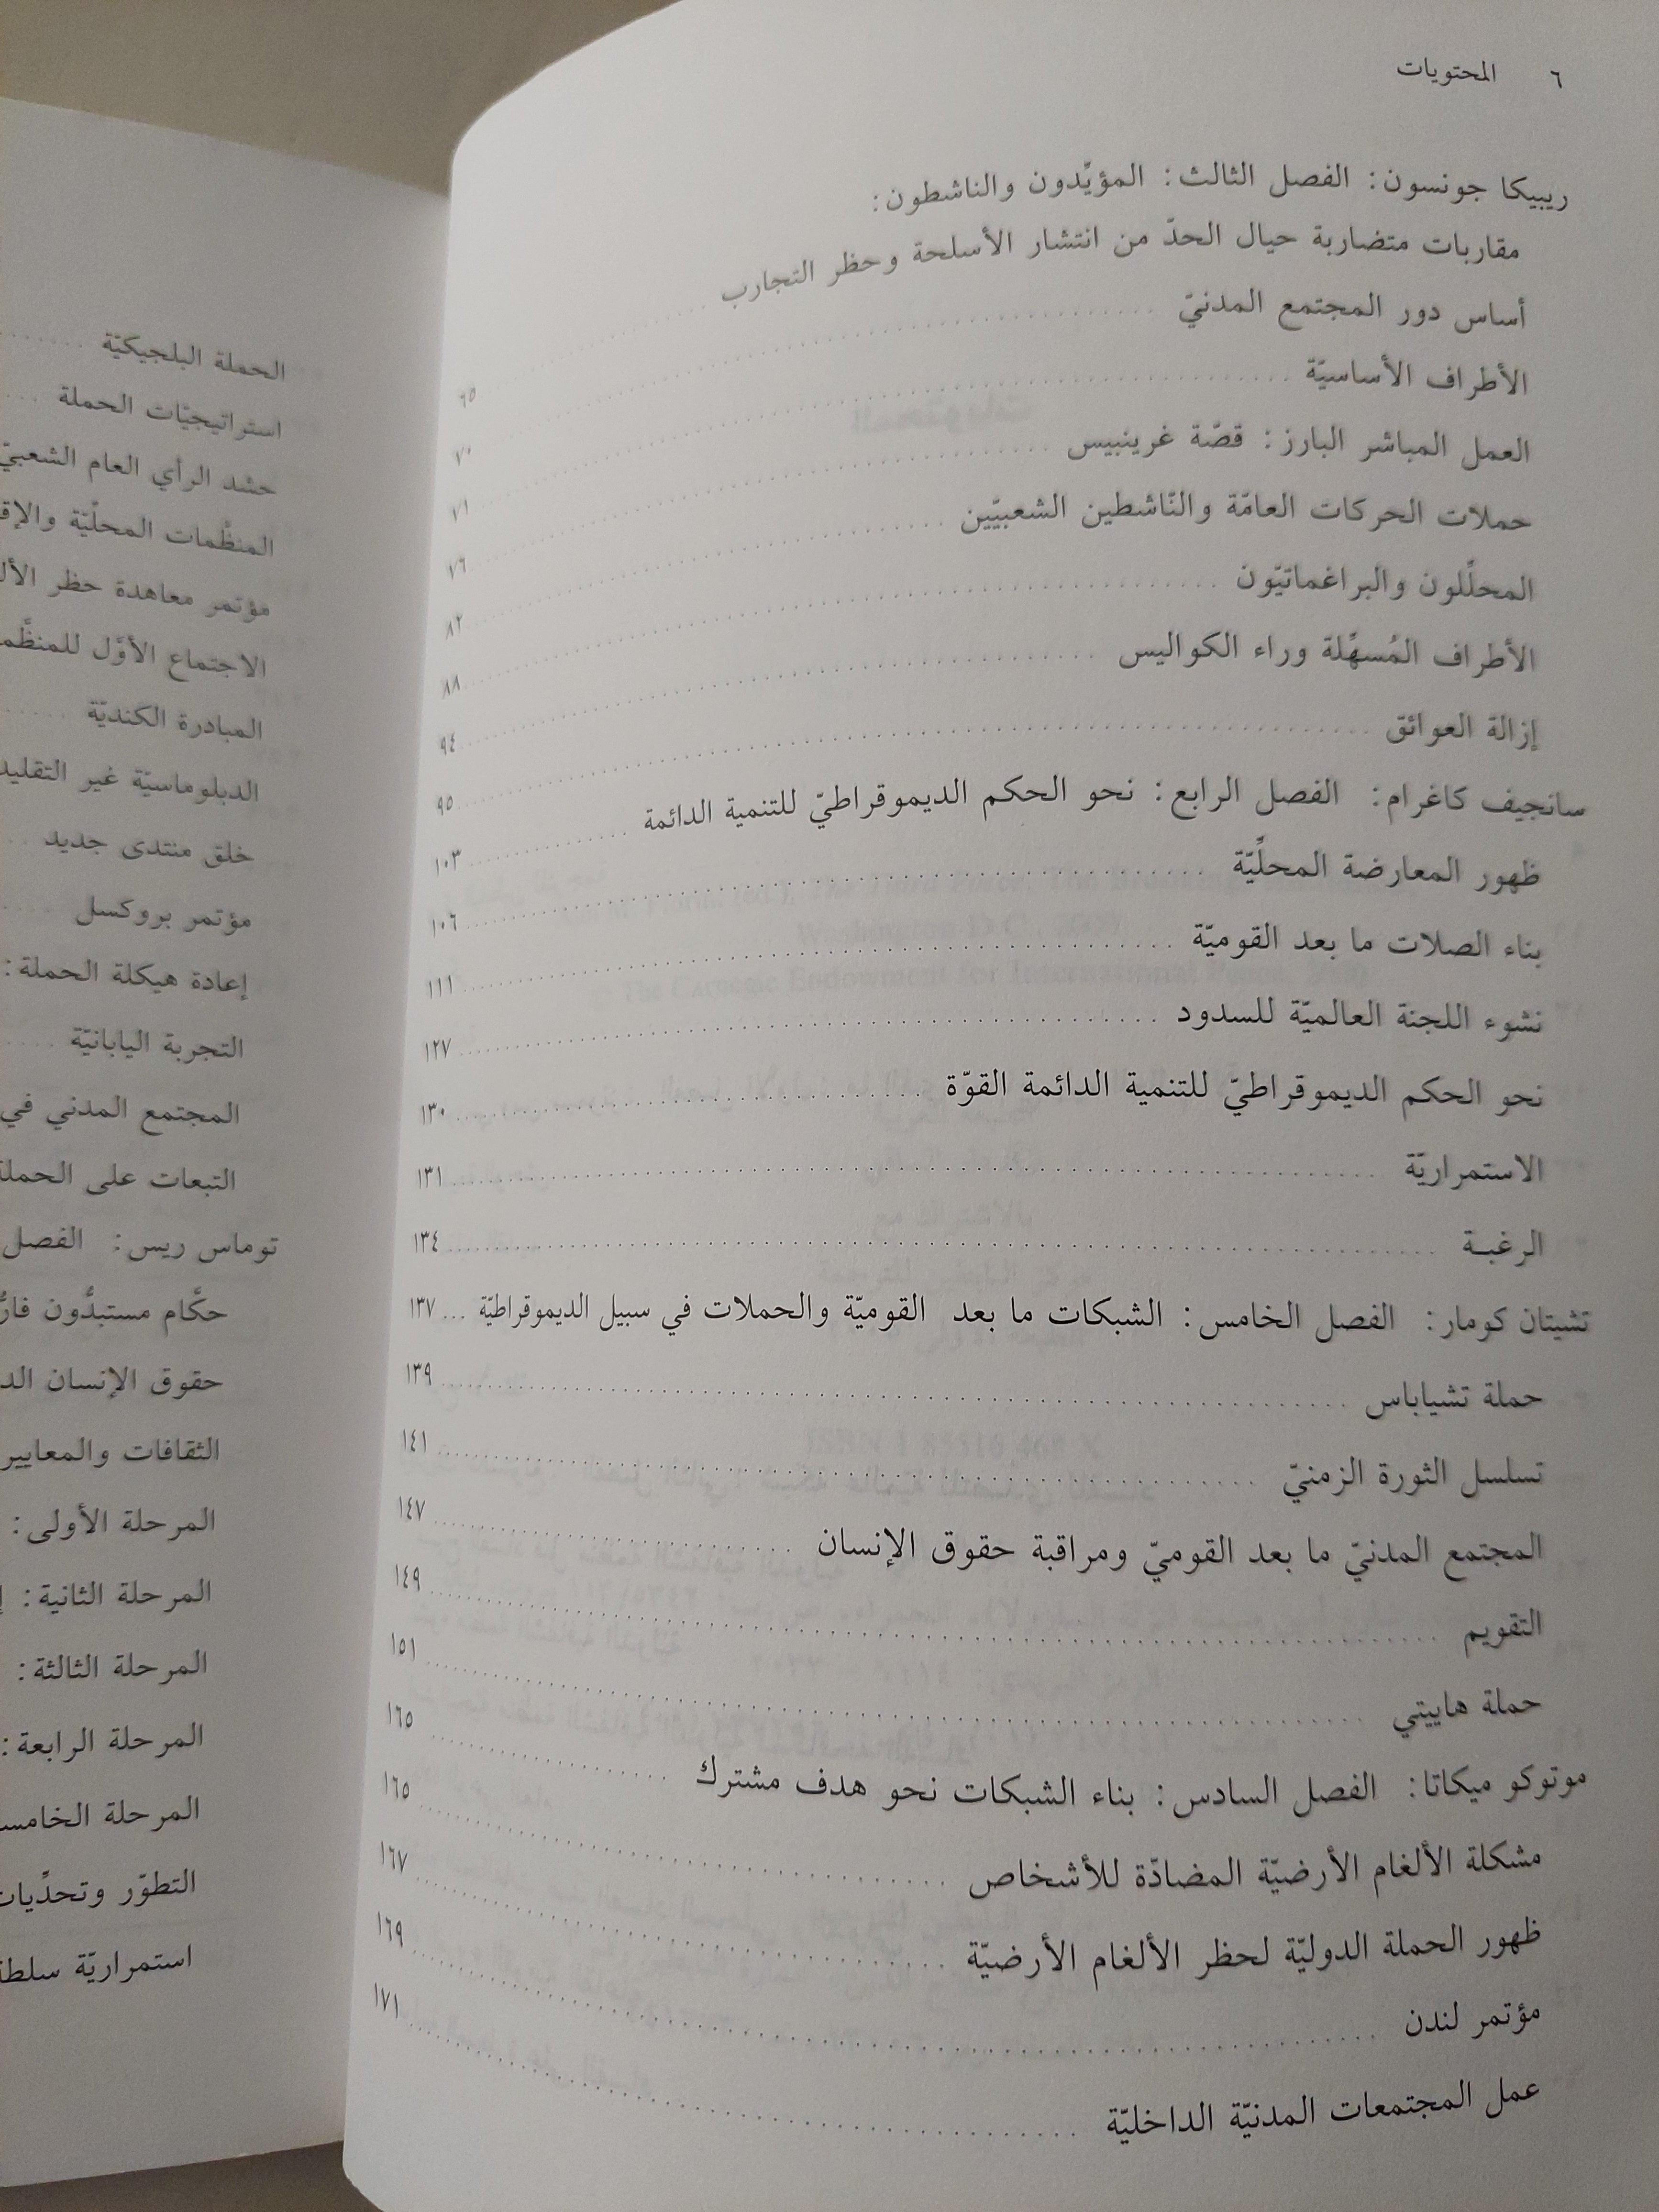 ٦ المحتويات
ريبيكا جونسون: الفصل الثالث: المؤيّدون والناشطون:
مقاربات متضاربة حيال الحدّ من انتشار الأسلحة وحظر التجارب ٦٥
أساس دور المجتمع المدنيّ ٧٠
الأطراف الأساسيّة ٧١
العمل المباشر البارز: قصّة غرينبيس ٧٦
حملات الحركات العامّة والنّاشطين الشعبيّين ٨٢
المحلّلون والبراغماتيّون ٨٨
الأطراف المُسهّلة وراء الكواليس ٩٤
إزالة العوائق ٩٥
سانجيف كاغرام: الفصل الرابع: نحو الحكم الديموقراطيّ للتنمية الدائمة ١٠٣
ظهور المعارضة المحلّيّة ١٠٦
بناء الصلات ما بعد القوميّة ١١١
نشوء اللجنة العالميّة للسدود ١٢٧
نحو الحكم الديموقراطيّ للتنمية الدائمة القوّة ١٣٠
الاستمراريّة ١٣١
الرغبـة ١٣٤
تشيتان كومار: الفصل الخامس: الشبكات ما بعد القوميّة والحملات في سبيل الديموقراطيّة ... ١٣٧
حملة تشياباس ١٣٩
تسلسل الثورة الزمنيّ ١٤١
المجتمع المدنيّ ما بعد القوميّ ومراقبة حقوق الإنسان ١٤٧
التقويم ١٤٩
حملة هاييتي ١٥١
موتوكو ميكاتا: الفصل السادس: بناء الشبكات نحو هدف مشترك ١٦٥
مشكلة الألغام الأرضيّة المضادّة للأشخاص ١٦٥
ظهور الحملة الدوليّة لحظر الألغام الأرضيّة ١٦٧
مؤتمر لندن ١٦٩
عمل المجتمعات المدنيّة الداخليّة ١٧١
الحملة البلجيكيّة
استراتيجيّات الحملة
حشد الرأي العام الشعبيّ
المنظّمات المحلّيّة
مؤتمر معاهدة حظر
الاجتماع الأوّل
المبادرة الكنديّة
الدبلوماسيّة غير
خلق منتدى جديد
مؤتمر بروكسل
إعادة هيكلة الحملة:
التجربة اليابانيّة
المجتمع المدني في
التبعات على
توماس ريس: الفصل
حكّام مستبدّون
حقوق الإنسان
الثقافات والمعايير
المرحلة الأولى:
المرحلة الثانية:
المرحلة الثالثة:
المرحلة الرابعة:
المرحلة
التطوّر
استمراريّة